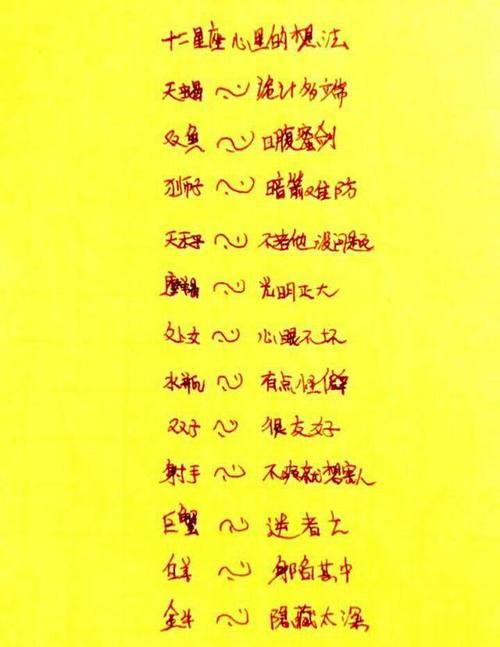 十二星座心里的想法
天蝎~诡计多文常
双鱼~口腹蜜剑
狮子~暗箭难防
天秤~不若他没问题
摩羯~光明正大
处女~心眼不坏
水瓶~有点怪僻
双子~很友好
射手~不爽就想害人
巨蟹~逆者亡
白羊~身陷其中
金牛~隐藏太深